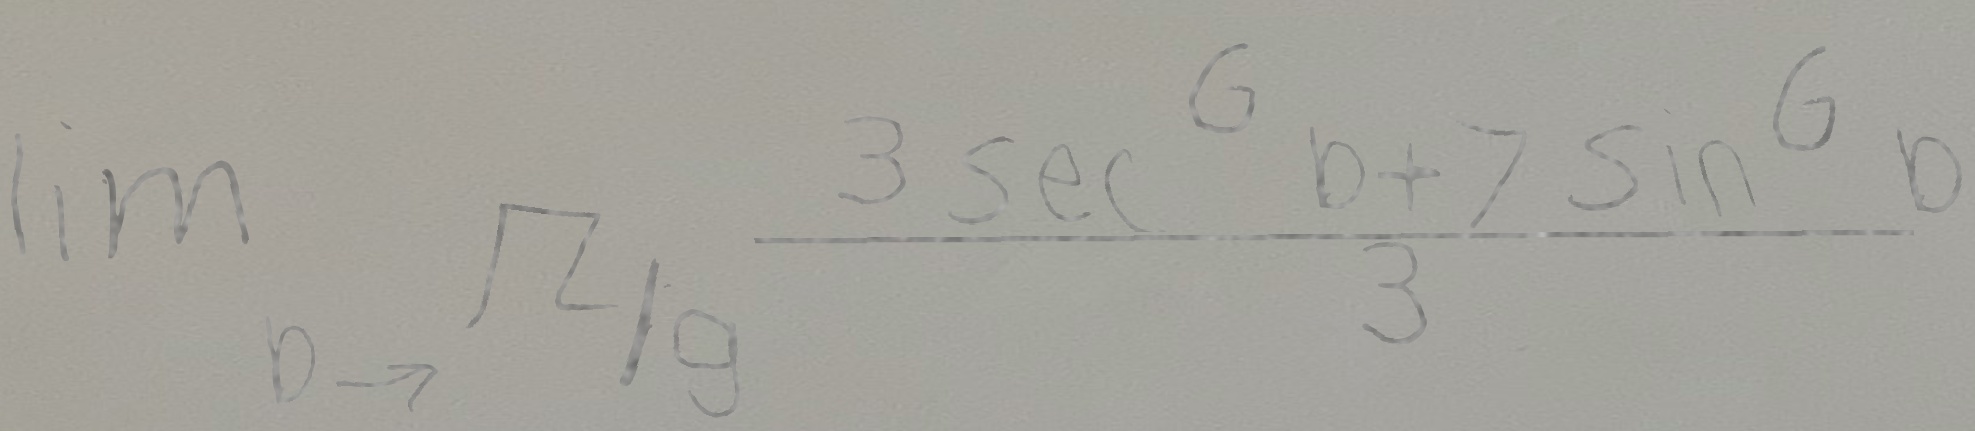 lim b→π/9 (3 sec^6 b + 7 sin^6 b)/3